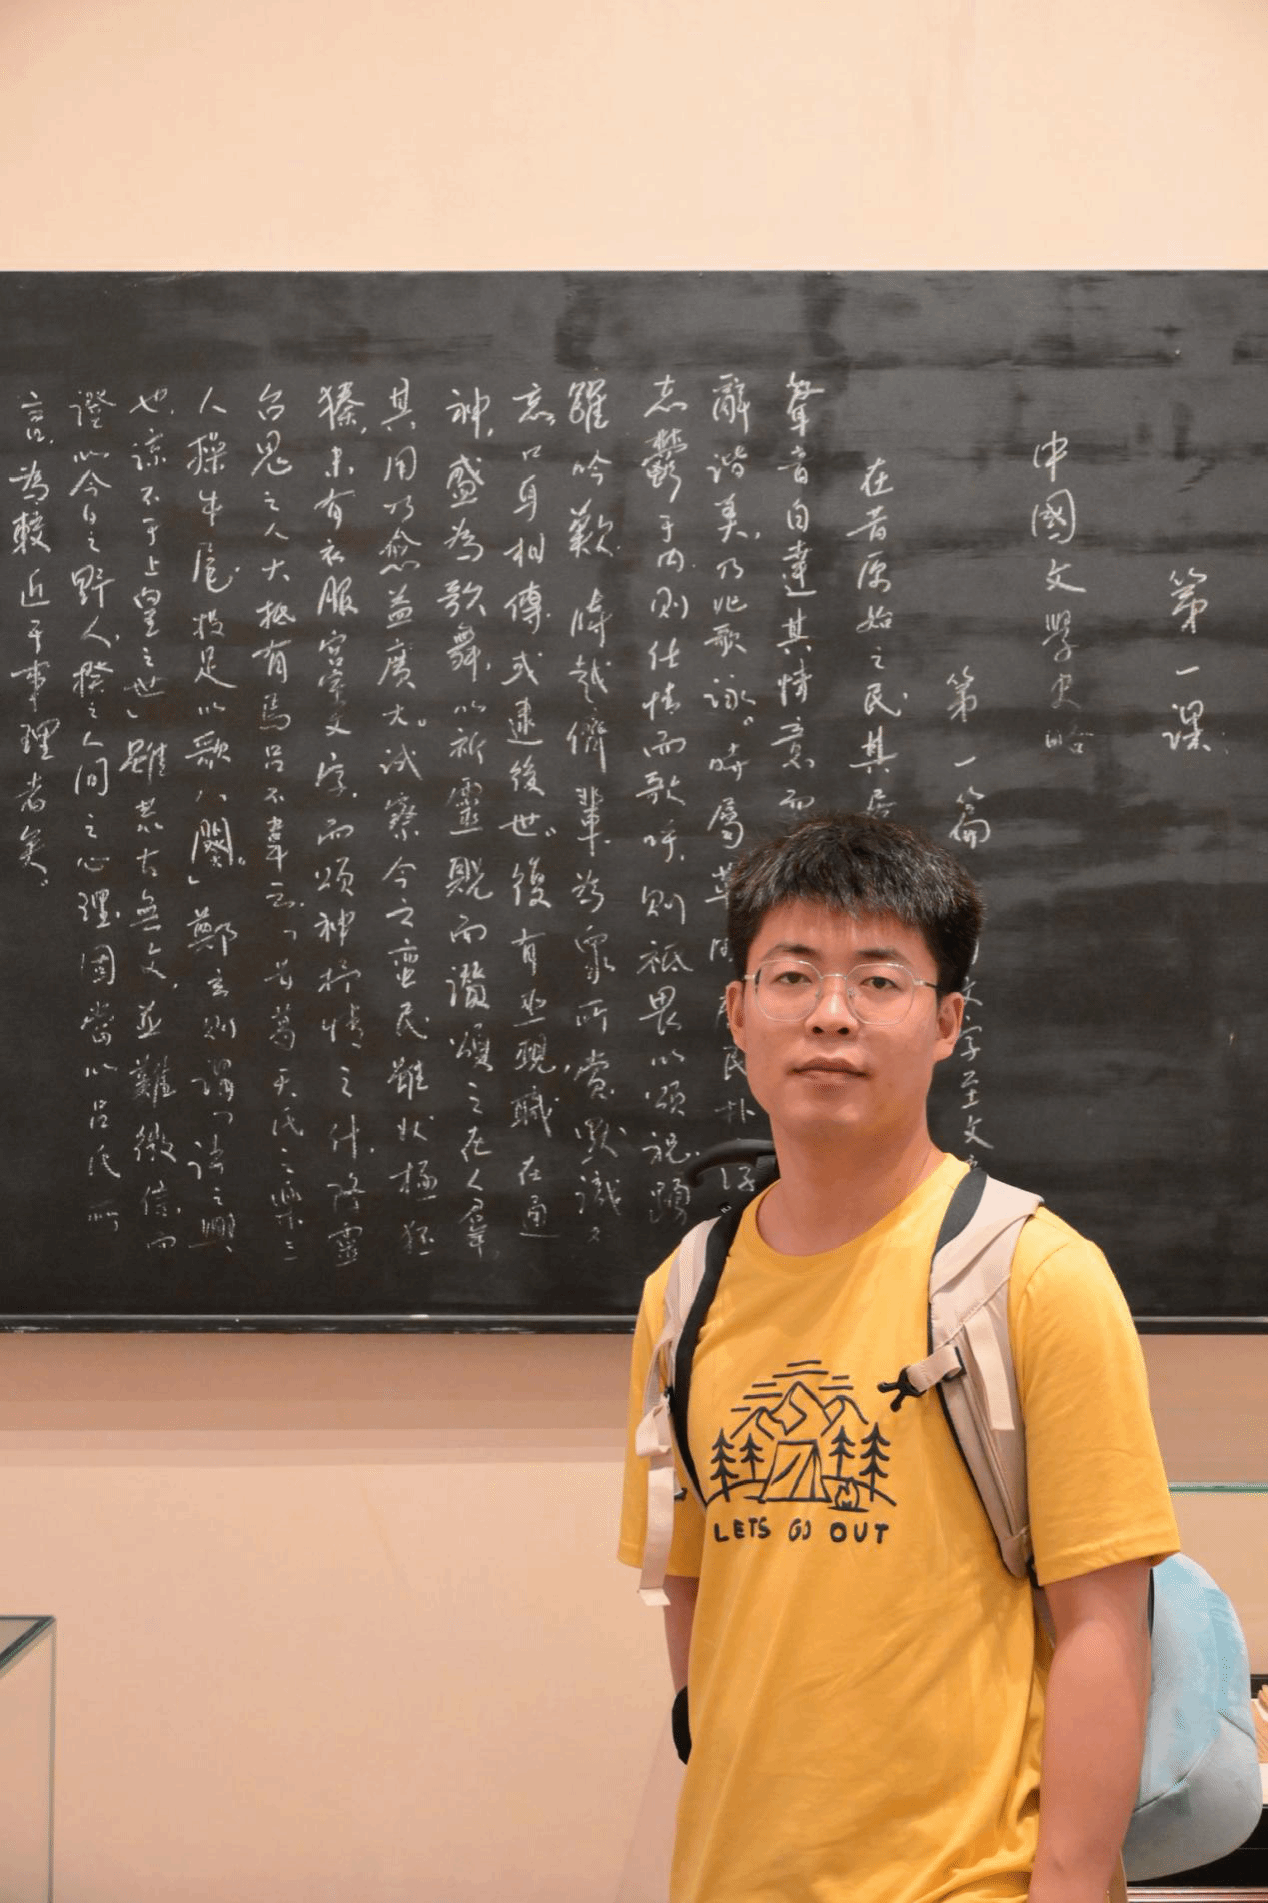 第一課
中國文學史略
第一篇 文字至文
在昔原始之民,其居
聲音自達其情意而
辭諧美,乃兆歌詠。時屬草 民朴淳
志鬱于內,則任情而歌呼,則祇畏以頌祝,踴
躍吟歎,時越儕輩,為衆所賞,默識不
忘,口耳相傳,或逮後世。復有巫覡,職在通
神,盛為歌舞,以祈靈貺,而讚頌之在人羣,
其用乃愈益廣大。試察今之蠻民,雖狀極狉
獉,未有衣服宮室文字,而頌神抒情之什,降靈
召鬼之人,大抵有焉。呂不韋云,「昔葛天氏之樂,三
人操牛尾,投足以歌八闋。」鄭玄則謂「詩之興
也,諒不于上皇之世」雖荒古無文,並難徵信,而
證以今日之野人,揆之人間之心理,固當以呂氏所
言,為較近于事理者矣。
LETS GO OUT